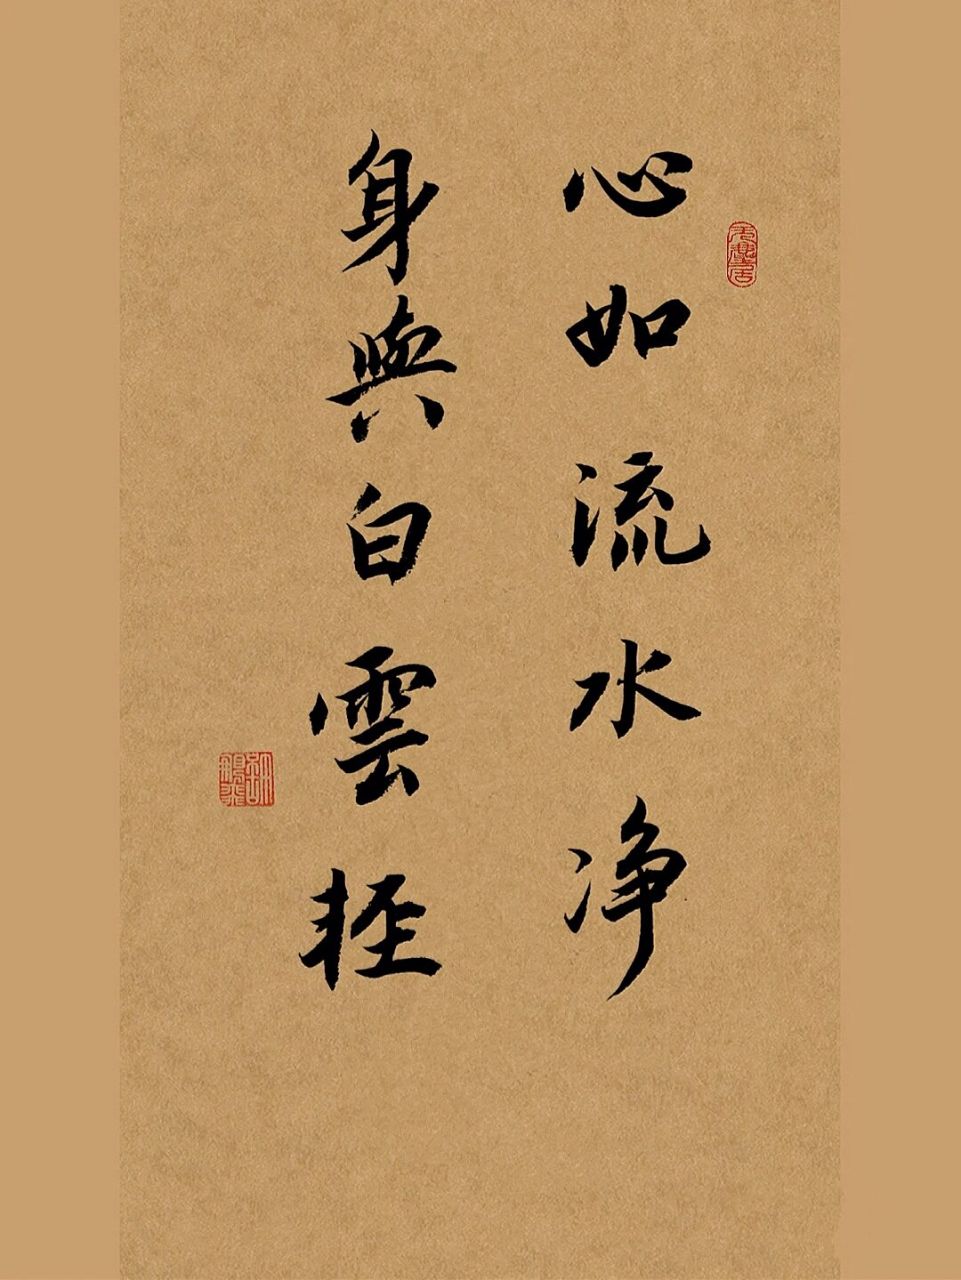 心如流水净
身與白雲輕